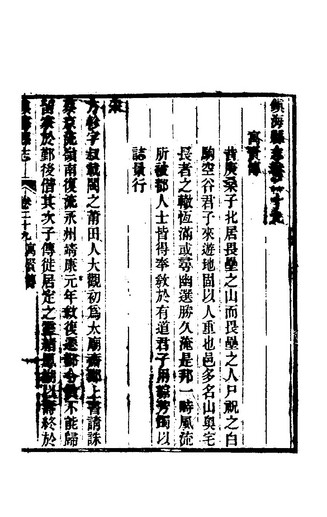 鎮海縣志卷二十九
寓賢傳
昔庚桑子北居畏壘之山而畏壘之人尸祝之白
駒空谷君子來遊地固以人重也邑多名山奧宅
長者之轍恆滿或尋幽選勝久淹是邦一時風流
所被都人士皆得奉敎於有道君子用綜芳躅以
誌景行
宋
方軫字叔載閩之莆田人大觀初爲太廟齋郞上書請誅
蔡京流嶺南復流永州靖康元年敘復 不能歸
於鄞後偕其次子傳徙居定之 終於
卷二十九 寓賢傳